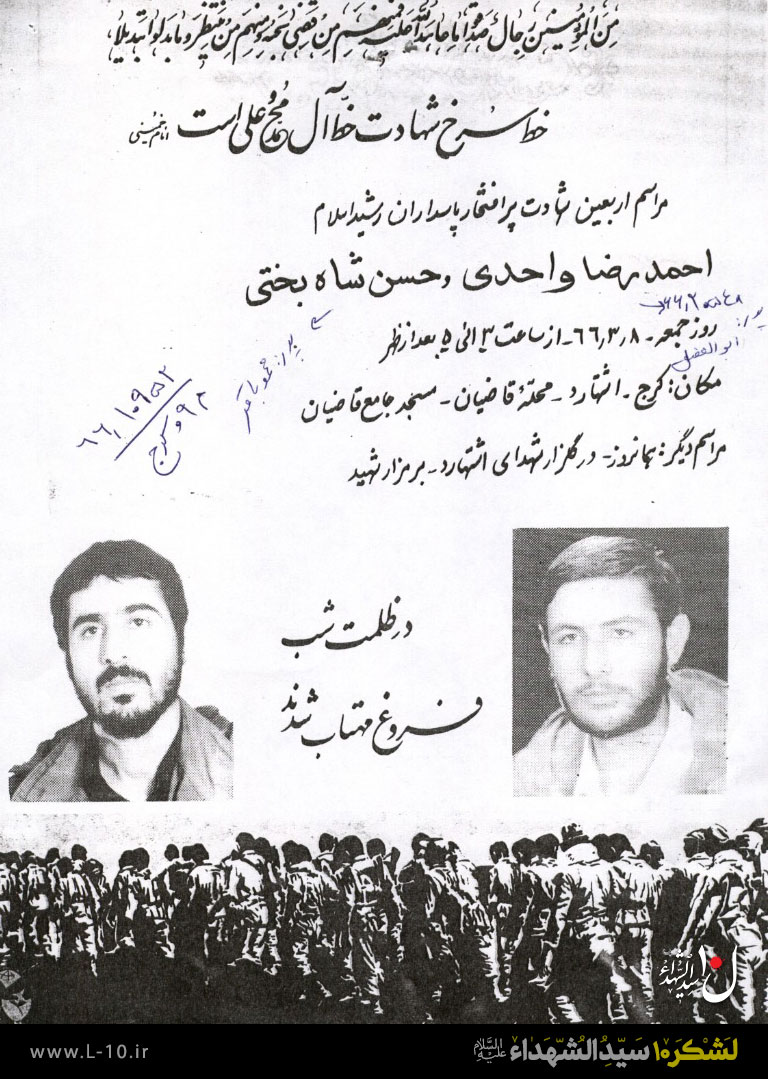 مِنَ الْمُؤْمِنِينَ رِجالٌ صَدَقُوا ما عاهَدُوا اللّهَ عَلَيْهِ فَمِنْهُمْ مَنْ قَضى نَحْبَهُ وَ مِنْهُمْ مَنْ يَنْتَظِرُ وَ ما بَدَّلُوا تَبْدِيلاً
خط سرخ شهادت خط آل محمد و علی است امام خمینی
مراسم اربعین شهادت پرافتخار پاسداران رشید اسلام
احمد رضا واحدی و حسن شاه بختی
روز جمعه - ۶۶,۳,۸ - از ساعت ۳ الی ۵ بعد از ظهر
ابوالفضل
مکان: کرج - اشتهارد - محلۀ قاضیان - مسجد جامع قاضیان
مراسم دیگر: همانروز - در گلزار شهدای اشتهارد - بر مزار شهید
کرج
در ظلمت شب
فروغ مهتاب شدند
سیدالشهداء
لشکر ۱۰ سیّدُ الشّهداء علیه السلام
www.L-10.ir